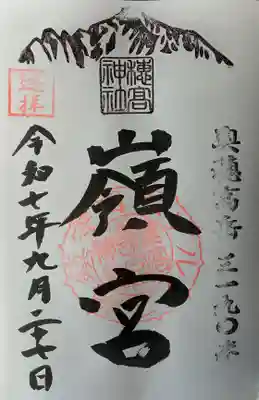 奥穂高岳三一九〇米
穂高神社
嶺宮
登拝
令和七年九月二十七日